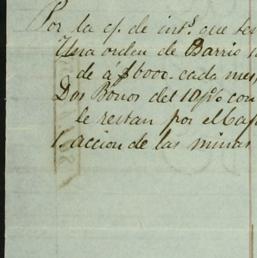 Por la c/. de int.s que ten
Una orden de Barrio
de á $6000. cada mes
Dos Bonos del 10p% con
le restan por el Cap
1. accion de las minas